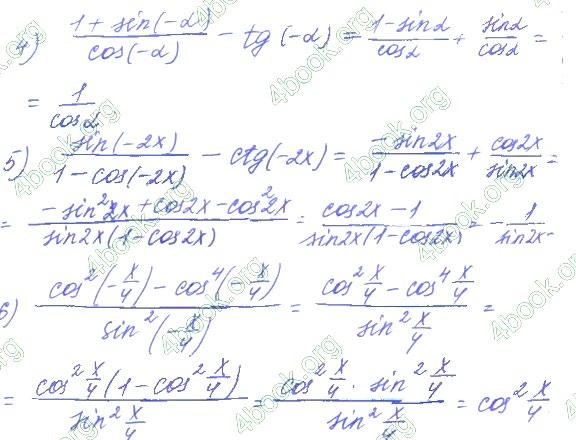 4) (1 + sin(-α))/(cos(-α)) - tg(-α) = (1 - sinα)/(cosα) + (sinα)/(cosα) =
= 1/(cosα)
5) (sin(-2x))/(1 - cos(-2x)) - ctg(-2x) = (-sin2x)/(1 - cos2x) + (cos2x)/(sin2x) =
= (-sin²2x + cos2x - cos²2x)/(sin2x(1 - cos2x)) = (cos2x - 1)/(sin2x(1 - cos2x)) = -1/(sin2x)
6) (cos²(-x/4) - cos⁴(-x/4))/(sin²(-x/4)) = (cos² x/4 - cos⁴ x/4)/(sin² x/4) =
= (cos² x/4 (1 - cos² x/4))/(sin² x/4) = (cos² x/4 · sin² x/4)/(sin² x/4) = cos² x/4
4book.org